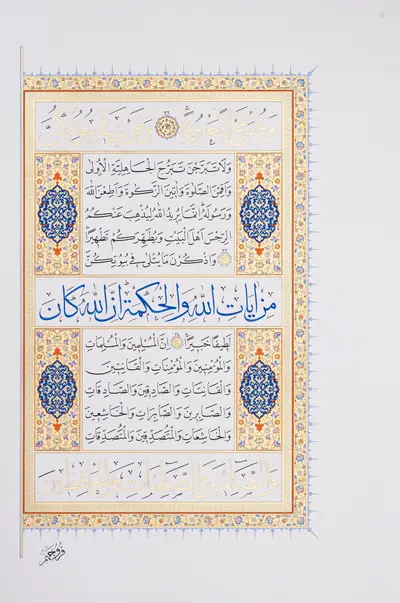 وَقُلْنَ قَوْلًا مَعْرُوفًا وَقَرْنَ فِي بُيُوتِكُنَّ
وَلَا تَبَرَّجْنَ تَبَرُّجَ الْجَاهِلِيَّةِ الْأُولَى
وَاَقِمْنَ الصَّلٰوةَ وَاٰتِينَ الزَّكٰوةَ وَاَطِعْنَ اللّٰهَ
وَرَسُولَهُ اِنَّمَا يُرِيدُ اللّٰهُ لِيُذْهِبَ عَنْكُمُ
الرِّجْسَ اَهْلَ الْبَيْتِ وَيُطَهِّرَكُمْ تَطْهِيرًا
وَاذْكُرْنَ مَا يُتْلَى فِي بُيُوتِكُنَّ
مِنْ اٰيَاتِ اللّٰهِ وَالْحِكْمَةِ اِنَّ اللّٰهَ كَانَ
لَطِيفًا خَبِيرًا اِنَّ الْمُسْلِمِينَ وَالْمُسْلِمَاتِ
وَالْمُؤْمِنِينَ وَالْمُؤْمِنَاتِ وَالْقَانِتِينَ
وَالْقَانِتَاتِ وَالصَّادِقِينَ وَالصَّادِقَاتِ
وَالصَّابِرِينَ وَالصَّابِرَاتِ وَالْخَاشِعِينَ
وَالْخَاشِعَاتِ وَالْمُتَصَدِّقِينَ وَالْمُتَصَدِّقَاتِ
وَالصَّائِمِينَ وَالصَّائِمَاتِ وَالْحَافِظِينَ